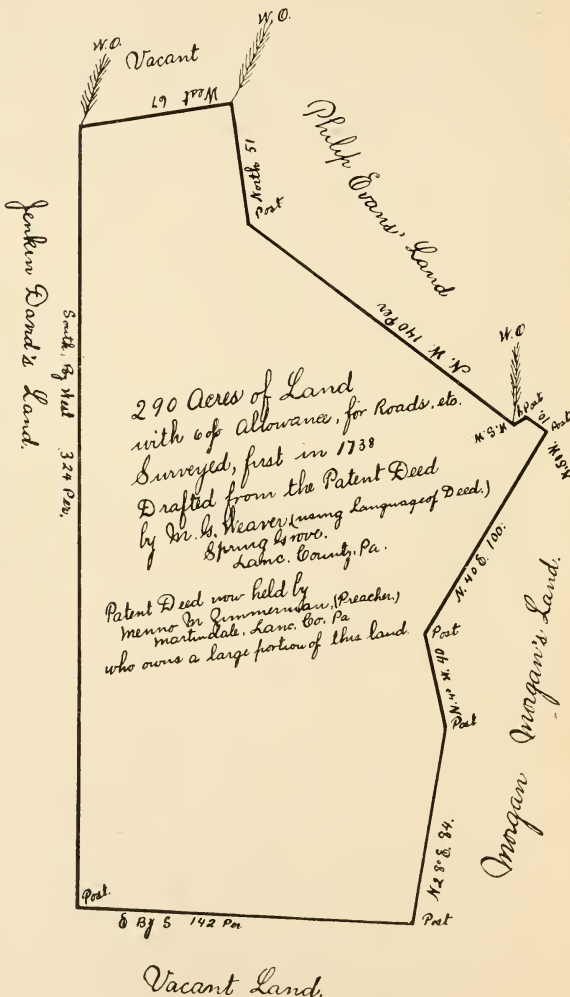 W.O.
W.O.
Vacant
West 67
North 51
Post
Philip Evans' Land
N. W. 140 Per
W.O
Post
Post
Jenkin David's Land.
South, By West 324 Per,
290 Acres of Land
with 6 of Allowance, for Roads, etc.
Surveyed, first in 1738
Drafted from the Patent Deed
by M. G. Weaver (using Language of Deed.)
Spring Grove.
Lanc. County, Pa.
Patent Deed now held by
Menno M Zimmerman, (Preacher.)
Martindale, Lanc. Co. Pa
who owns a large portion of this land.
N. 40 E. 100.
Post
Post
Morgan Morgan's Land.
N 28° E. 84.
Post.
E By S 142 Per
Post
Vacant Land.